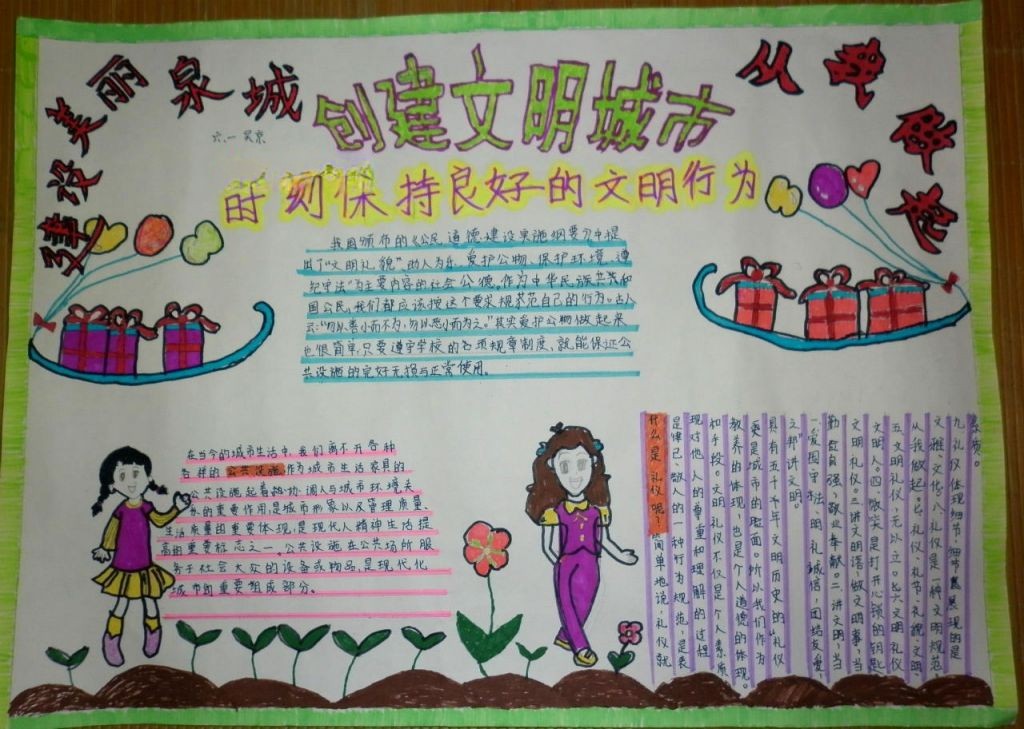 建设美丽泉城
创建文明城市
六.一 吴京
时刻保持良好的文明行为
我国颁布的《公民道德建设实施纲要》中提
出了“文明礼貌”、助人为乐、爱护公物、保护环境、遵
纪守法”为主要内容的社会公德。作为中华民族共共和
国公民,我们都应该按这个要求规范自己的行为。古人
云:“勿以善小而不为,勿以恶小而为之。”其实爱护公物做起来
也很简单,只要遵守学校的各项规章制度,就能保证公
共设施的完好无损与正常使用。
在当今的城市生活中,我们离不开各种
各样的公共设施,作为城市生活家具的
公共设施起着协调人与城市环境关
系的重要作用,是城市形象以及管理质量、
生活质量的重要体现,是现代人精神生活提
高的重要标志之一,公共设施在公共场所服
务于社会大众的设备或物品,是现代化
城市的重要组成部分。
什么是礼仪呢?简单地说,礼仪就
是律己、敬人的一种行为规范,是表
现对他人的尊重和理解的过程
和手段。文明礼仪不仅是个人素质、
教养的体现,也是个人道德的体现。
更是城市的脸面。所以我们作为
具有五千年文明历史的“礼仪
之邦”讲文明。
一爱国守法、明礼诚信,团结友爱,
勤俭自强,敬业奉献。二讲文明,当
文明礼仪。三讲文明语做文明事,当
文明人。四微笑是打开心锁的钥匙
五文明礼仪,无以立。六文明礼仪
从我做起。七礼仪、礼节、礼貌、文明、
文雅、文化。八礼仪是一种文明规范,
九礼仪体现细节,细节展现的是
素质。